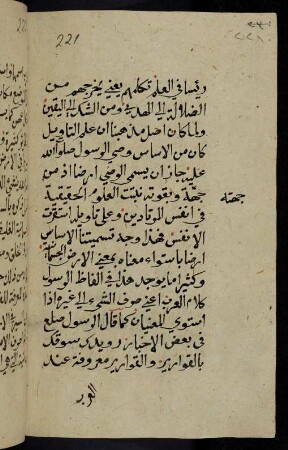 221
رئيسا في العلم تكلمهم يعني يخرجهم من
الضلالة الى الهدى ومن الشك الى اليقين
ولما كان اصل مذهبنا ان علم التاويل
كان من الاساس وصي الرسول صلوات الله
عليه جاز ان يسمى الوصي ارضا اذ من
جهته
جهة وبقوته نبتت العلوم الحقيقية
في انفس المرتادين وعلى تاويله استقرت
الانفس فهذا وجه تسميتنا الاساس
ارضا باستواء معناه بمعنى الارض
وكثيرا ما يوجد هذا في الفاظ الرسول
كلام العرب اعني صرف الشيء الى غيره اذا
استوى المعنيان كما قال الرسول صلع
في بعض الاخبار رويدك سوقك
بالقوارير والقوارير معروفة عند